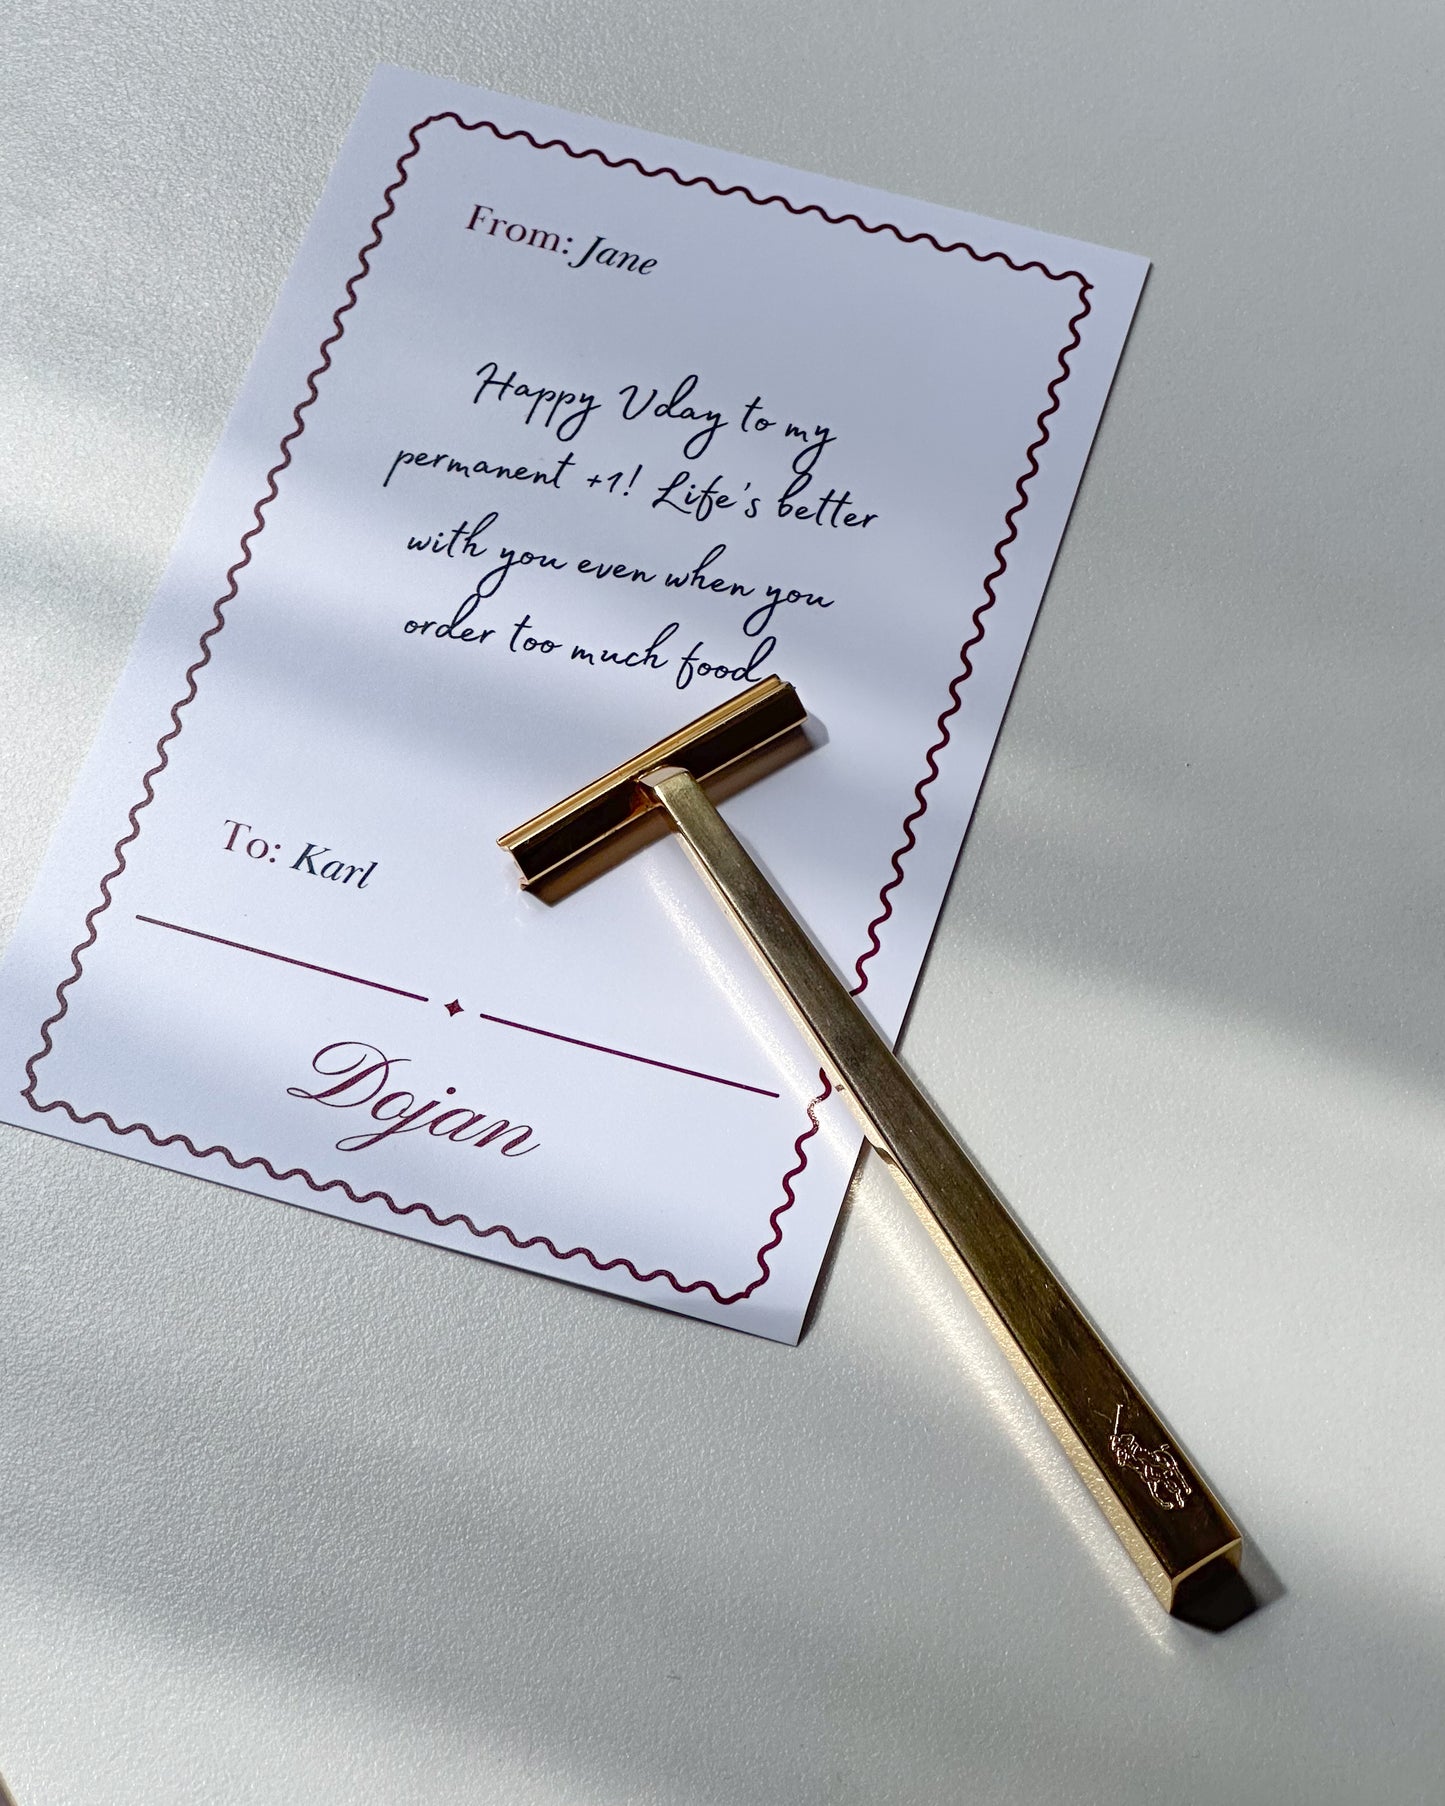 From: Jane
Happy Vday to my
permanent +1! Life's better
with you even when you
order too much food
To: Karl
Dojan